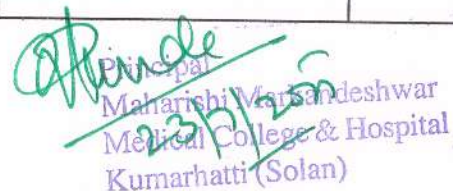 Principal
Maharishi Markandeshwar
Medical College & Hospital
Kumarhatti (Solan)